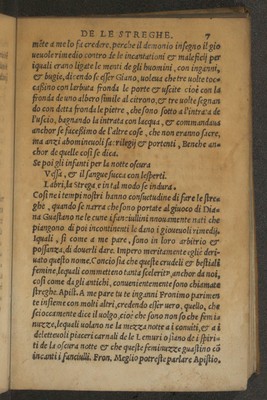 DE LE STREGHE. 7
mite a me lo fa credere, perche il demonio insegno il gio
ueuole rimedio contro de le incantationi & maleficij per
i quali erano ligate le menti de gli huomini, con inganni,
& bugie, dicendo se esser Giano, uoleua che tre uolte toc-
cassino con larbuta fronda le porte & uscite cioè con la
fronda de uno albero simile al citrono, & tre uolte segnan
do con deta frondele pietre, che sono sotto a l'intrata de
l'uscio, bagnando la intrata con lacqua, & commandaua
anchor se facessimo de l'altre cose, che non erano sacre,
ma anzi abomineuoli sacrilegij & portenti, Benche an-
chor de quelle cosi se dica.
Se poi gli infanti per la notte oscura
Vessa, & il sangue succa con lesperti
Labri, la Strega e in tal modo se indura.
Cosi ne i tempi nostri hanno consuetudine di fare le streu
ghe, quando se narra che sono portate al giuoco di Dia=
na Guastano ne le cune i fanciullini nouamente nati che
piangono di poi incontinenti le dano i gioueuoli rimedij,
liquali, si come a me pare, sono in loro arbitrio &
possanza, di douerli dare. Impero meritamente egli è deri-
uato questo nome. Concio sia che queste crudeli & bestiali
femine, lequali commetteno tanta sceleritè, anchor da noi,
cosi come da gli antichi, conuenientemente sono chiamate
streghe. Apist. A me pare tu te inganni Fronimo parimen
te insieme con molti altri, credendo esser uero, quello, che
sciocamente dice il uolgo, cioè che sono non so che femi
nuzze, lequali uolano ne la mezza notte a i conuiti, & a i
deletteuoli piaceri carnali de le Lemuri o siano de i spiri-
ti de la oscura notte & che queste feminuzze guastino cō
incanti i fanciulli. Fron. Meglio potresti parlare Apistio,